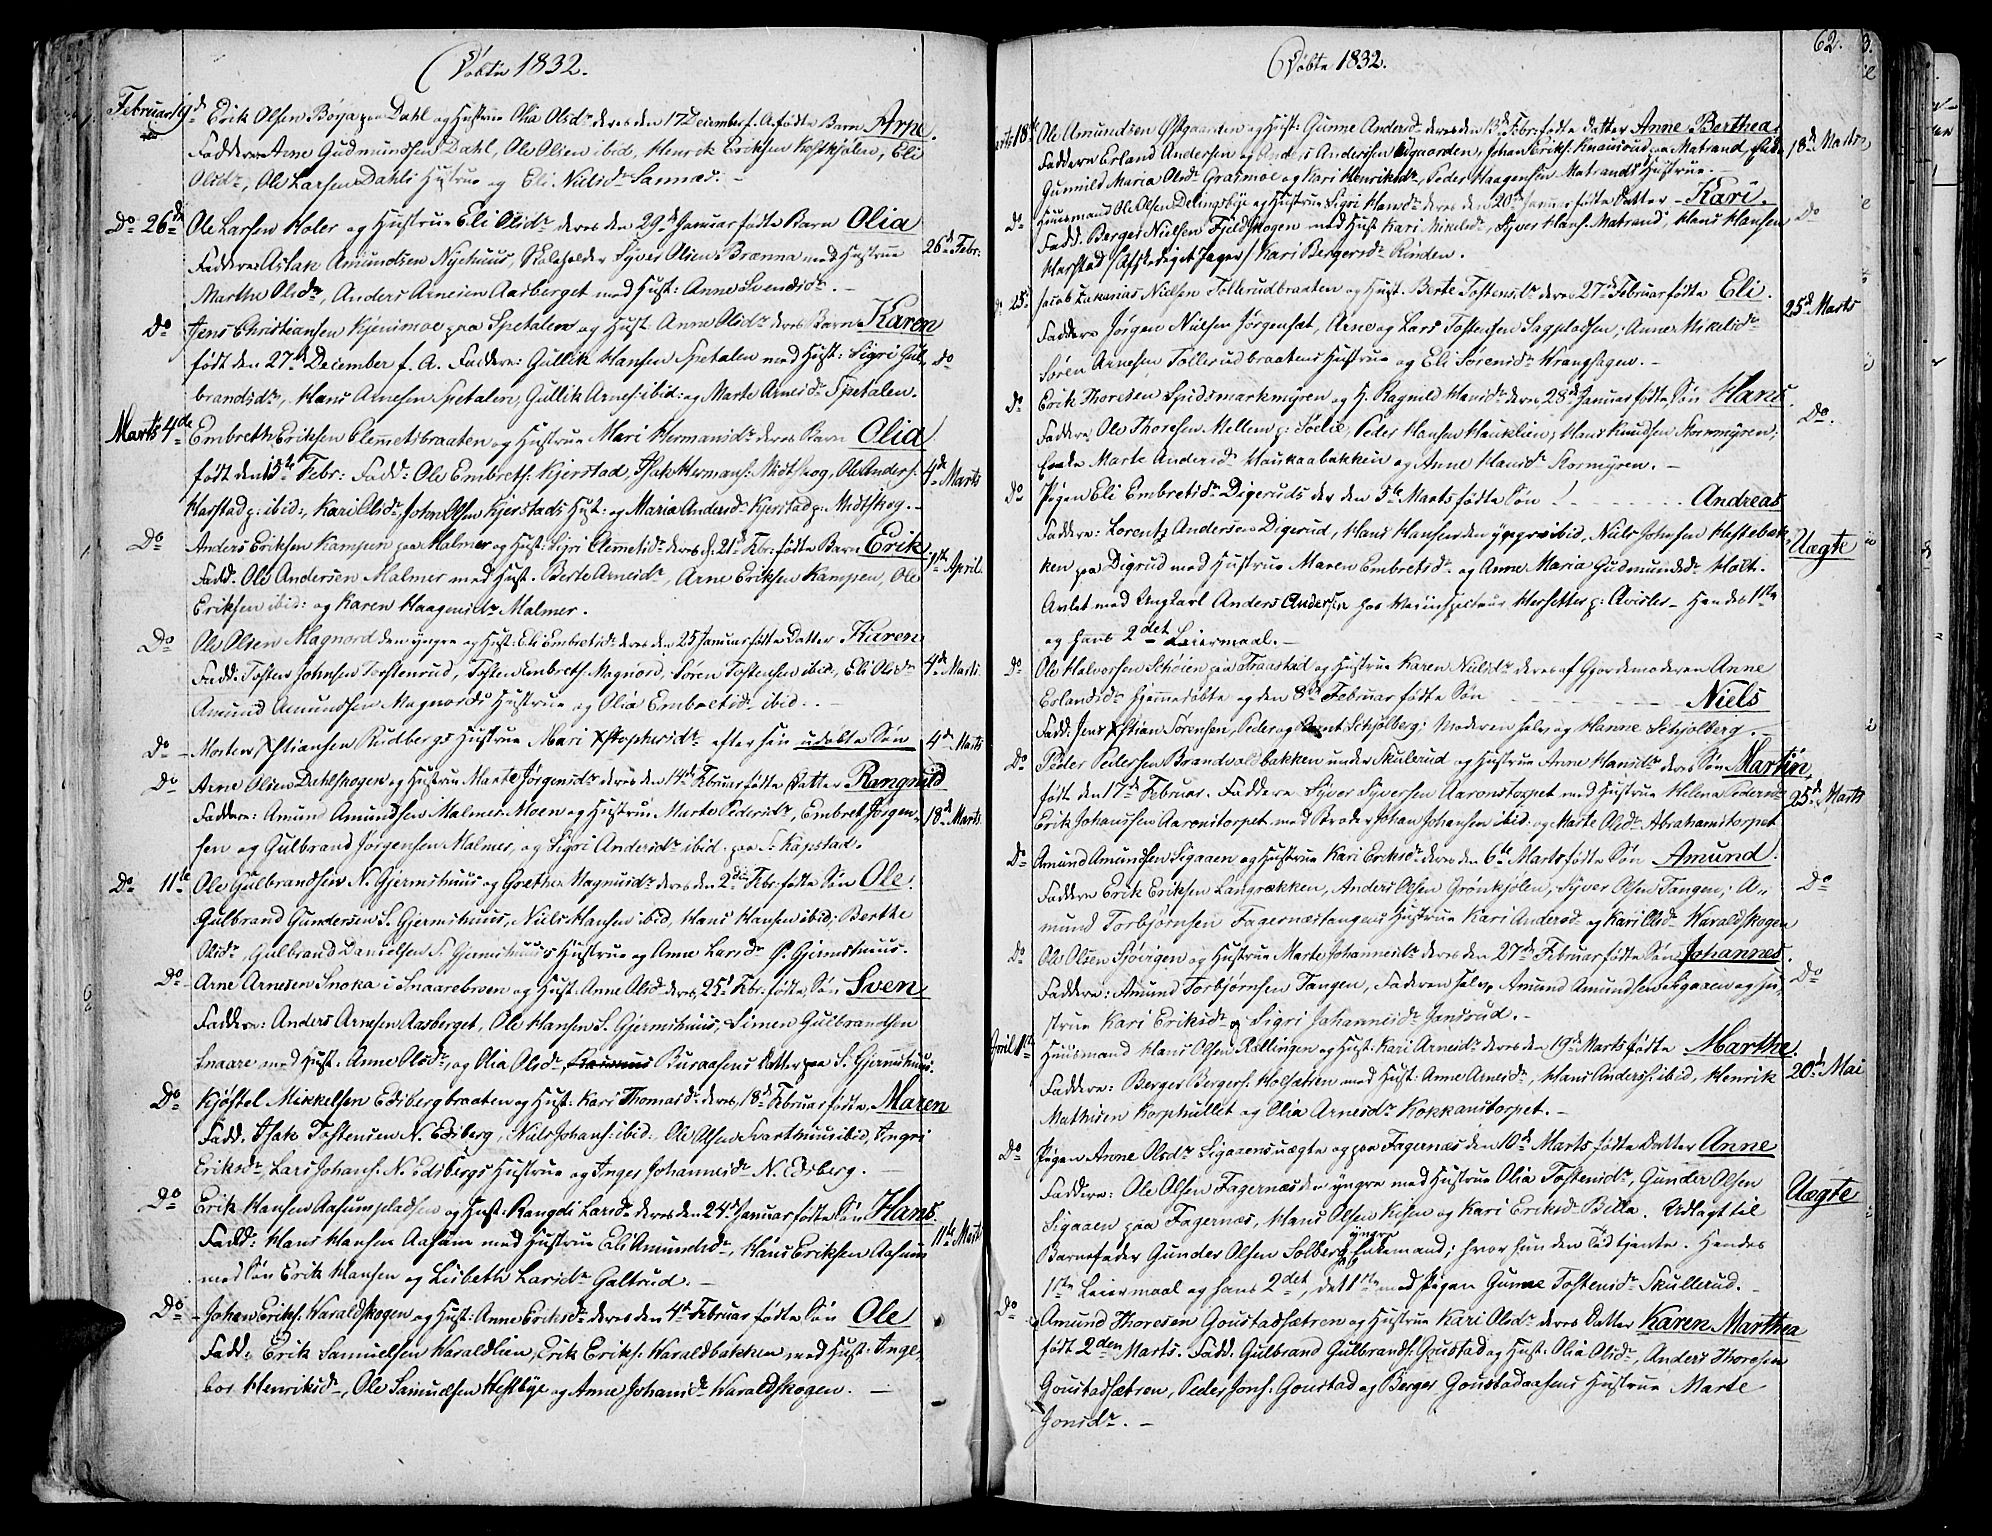 Døbte 1832.
Februar 19d Erik Olsen Børja paa Dahl og Hustrue Olia Olsdr. deres den 17 Decembr f. A. fødte Barn Arne.
Faddere Arne Gudmundsen Dahl, Ole Olsen ibid, Henrik Eriksen Kostkjølen, Eli
Olsdr, Ole Larsen Dahls Hustrue og Eli Nilsdr Sannæs.
Do 26de Ole Larsen Holer og Hustrue Eli Olsdr deres den 29d Januar fødte Barn Olia 26d Febr:
Faddere Aslak Amundsen Nychuus, Skoleholder Syver Olsen Brænna med Hustrue
Marthe Olsdr, Anders Arnesen Aasberget med Hust: Anne Svendsdr.
Do Jens Christiansen Kjensmoe paa Spetalen og Hust. Anne Olsdr deres Barn Karen
født den 27d December f. A. Faddere: Gullik Hansen Spetalen med Hust: Sigri Gul- Do
brandsdr, Hans Arnesen Spetalen, Gullik Arnes: ibid: og Marte Arnesdr Spetalen.
Marts 4de Embreth Eriksen Clemetsbraaten og Hustrue Mari Hermansdr deres Barn Olia
født den 15de Febr: Fadd: Ole Embreths: Kjerstad, Isak Hermans: Midtskog, Ole Anders: 4d Marts
Harstad p: ibid:, Kari Olsdr John Olsen Kjerstads Hust: og Maria Andersdr Kjerstad p: Midtskog.
Do Anders Eriksen Kampen paa Malmer og Hust: Sigri Clemetsdr deres d. 21d Febr: fødte Barn Erik 1st April.
Fadd. Ole Andersen Malmer med Hust. Berte Arnesdr, Arne Eriksen Kampen, Ole
Eriksen ibid: og Karen Haagensdr Malmer.
Do Ole Olsen Magnord den yngre og Hust: Eli Embretsdr deres den 25 Januar fødte Datter Karen
Fadd. Tosten Johnsen Torstenrud, Tosten Embreths. Magnord, Søren Tostensen ibid, Eli Olsdr 4de Marts
Amund Amundsen Magnords Hustrue og Olia Embretsdr ibid.
Do Morten Xstiansen Rudbergs Hustrue Mari Xstophersdr efter sin udøbte Søn 4d Marts
Do Arne Olsen Dahlskogen og Hustrue Marte Jørgensdr deres den 14d Februar fødte Datter Rangnild
Faddere: Amund Amundsen Malmer-Moen og Hustrue Marte Pedersdr, Embret Jørgen- 18d Marts
sen og Gulbrand Jørgensen Malmer, og Sigri Andersdr ibid. paa S. Kapstad.
Do 11te Ole Gulbrandsen N. Gjermshuus og Grethe Magnusdr deres den 2den Febr: fødte Søn Ole.
Gulbrand Gundersen S. Gjermshuus, Niels Hansen ibid, Hans Hansen ibid; Berthe
Olsdr, Gulbrand Danielsen S. Gjermshuus's Hustrue og Anne Larsdr S. Gjermshuus.
Do Arne Arnesen Snoka i Snaareberven og Hust: Anne Olsd. deres 25d Febr: fødte Søn Sven
Faddere: Anders Arnesen Aasberget, Ole Hansen S. Gjermshuus, Simen Gulbrandsen
Snaare med Hust: Anne Olsdr, og Olia Olsdr, Buraasens Datter paa S. Gjermshuus.
Do Kjøstel Mikkelsen Edsbergbraaten og Hust: Kari Thomasdr deres 18d Februar fødte Maren
Fadd. Isak Tostensen N. Edsberg, Niels Johans: ibid. Ole Olsen Svarthuus ibid, Ingri
Eriksdr, Lars Johans: N. Edsbergs Hustrue og Inger Johannesdr N. Edsberg.
Do Erik Hansen Aasumpladsen og Hust: Rangdi Larsdr deres den 24d Januar fødte Søn Hans.
Fadd: Hans Hansen Aasum med Hustrue Eli Amundsdr, Hans Eriksen Aasum 11te Marts
med Søn Erik Hansen og Lisbeth Larsdr Galtrud.
Do Johan Eriks: Waraldskogen og Hust: Anne Eriksdr deres den 4d Februar fødte Søn Ole
Fadd: Erik Samuelsen Waraldlien, Erik Eriks: Waraldbakken, med Hust: Inge-
bor Henriksdr, Ole Samuelsen Westbye og Anne Johansdr Waraldskogen.
Døbte 1832. 62.
Marts 18de Ole Amundsen Østgaarden og Hust: Gunne Andersdr deres den 13d Febr: fødte Datter Anne Berthea.
Faddere Erland Andersen og Anders Andersen Øigaarden, Johan Eriks. Knaisrud paa Matrand, 18d Marts
Gunnild Maria Olsdr Grasmoe og Kari Henriksdr, Peder Haagensen Matrands Hustrue.
Do Huusmand Ole Olsen Delingsbye og Hustrue Sigri Hansdr deres den 20d Januar fødte Datter Kari. Do
Fadd. Berger Nielsen Fjeldskogen med Hust: Kari Nikelsdr, Syver Hans: Matrand, Hans Hansen
Harstad /Afskediget Jæger/ Kari Bergersdr Rønden.
Do 25d Jacob Zakarias Nielsen Tollerudbraaten og Hust. Berte Tostensdr deres 27d Februar fødte Eli. 25d Marts
Faddere Jørgen Nielsen Jørgensæt, Arne og Lars Tostensen Sagpladsen; Anne Mikelsdr
Søren Arnesen Tollerudbraatens Hustrue og Eli Sørensdr Wrangsagen.
Do Erik Thoresen Spidsmarkmyren og H. Ragnild Hansdr deres 28d Januar fødte Søn Hans. Do.
Faddere Ole Thoresen Mellem p: Søelie, Peder Hansen Hauklien; Hans Knudsen Stormyren;
Enke Marte Andersdr Houkaabakken og Anne Hansdr Stormyren.
Do Pigen Eli Embretsdr Digeruds der den 5te Marts fødte Søn Andreas
Faddere: Lorentz Andersen Digerud, Hans Hansen den yngre ibid, Niels Johnsen Heftebak- Uægte
ken paa Digrud med Hustrue Maren Embretsdr og Anne Maria Gudmundsdr Holt.
Avlet med Ungkarl Anders Andersen hos Veiinspecteur Hersetter p: Avisler - Hendes 1ste
og hans 2det Leiermaal.
Do Ole Halvorsen Schøien paa Traastad og Hustrue Karen Nielsdr deres af Gjordemoderen Anne
Erlandsdr hjemmedøbte og den 8de Februar fødte Søn Niels
Fadd: Jens Xstian Sørensen, Peder og Bernt Schjølberg; Moderen selv og Hanne Schjølberg.
Do Peder Pedersen Brandvoldbakken under Skulerud og Hustrue Anne Hansdr deres Søn Martin,
født den 17d Februar. Faddere Syver Syversen Aaronstorpet med Hustrue Helena Pedersdr 25d Marts
Erik Johansen Aaronstorpet med Broder Johan Johansen ibid. og Marte Olsdr Abrahamstorpet
Do Amund Amundsen Sigaaen og Hustrue Kari Eriksdr deres den 6te Marts fødte Søn Amund.
Faddere Erik Eriksen Langrækken, Anders Olsen Grønkjølen, Syver Olsen Tangen; A- Do
mund Torbjørnsen Fagernæstangens Hustrue Kari Andersd. og Kari Olsdr Waraldskogen
Do Ole Olsen Sjøvigen og Hustrue Marte Johannesdr deres den 27de Februar fødte Søn Johannes. Do
Faddere: Amund Torbjørnsen Tangen, Faderen selv, Amund Amundsen Sigaaen og Hu-
strue Kari Eriksdr og Sigri Johannesdr Jansrud.
April 1ste Huusmand Hans Olsen Rællingen og Hust: Kari Arnesdr deres den 19d Marts fødte Marthe. 20de Mai
Faddere: Berger Bergers: Holsætren med Hust: Anne Arnesdr, Hans Anders: ibid, Henrik
Mathisen Korphullet og Olia Arnesdr Kokkanstorpet.
Do Pigen Anne Olsdr Sigaaens uægte og paa Fagernæs den 10d Marts fødte Datter Anne
Faddere: Ole Olsen Fagernæs den yngre med Hustrue Olia Tostensdr, Gunder Olsen Uægte
Sigaaen paa Fagernæs, Hans Olsen Kisen og Kari Eriksdr Billa. Udlagt til
Barnefader Gunder Olsen Solberg yngre Enkemand; hvor hun den Tid tjente. Hendes
1ste Leiermaal og hans 2det, det 1ste med Pigen Gunne Tostensdr Skullerud.
Do Amund Thoresen Goustadsætren og Hustrue Kari Olsdr deres Datter Karen Marthea
født 2den Marts. Fadd. Gulbrand Gulbrands: Goustad og Hust: Olia Olsdr, Anders Thoresen
Goustadsætren, Peder Jons: Goustad og Berger Goustadaasens Hustrue Marte
Jonsdr.